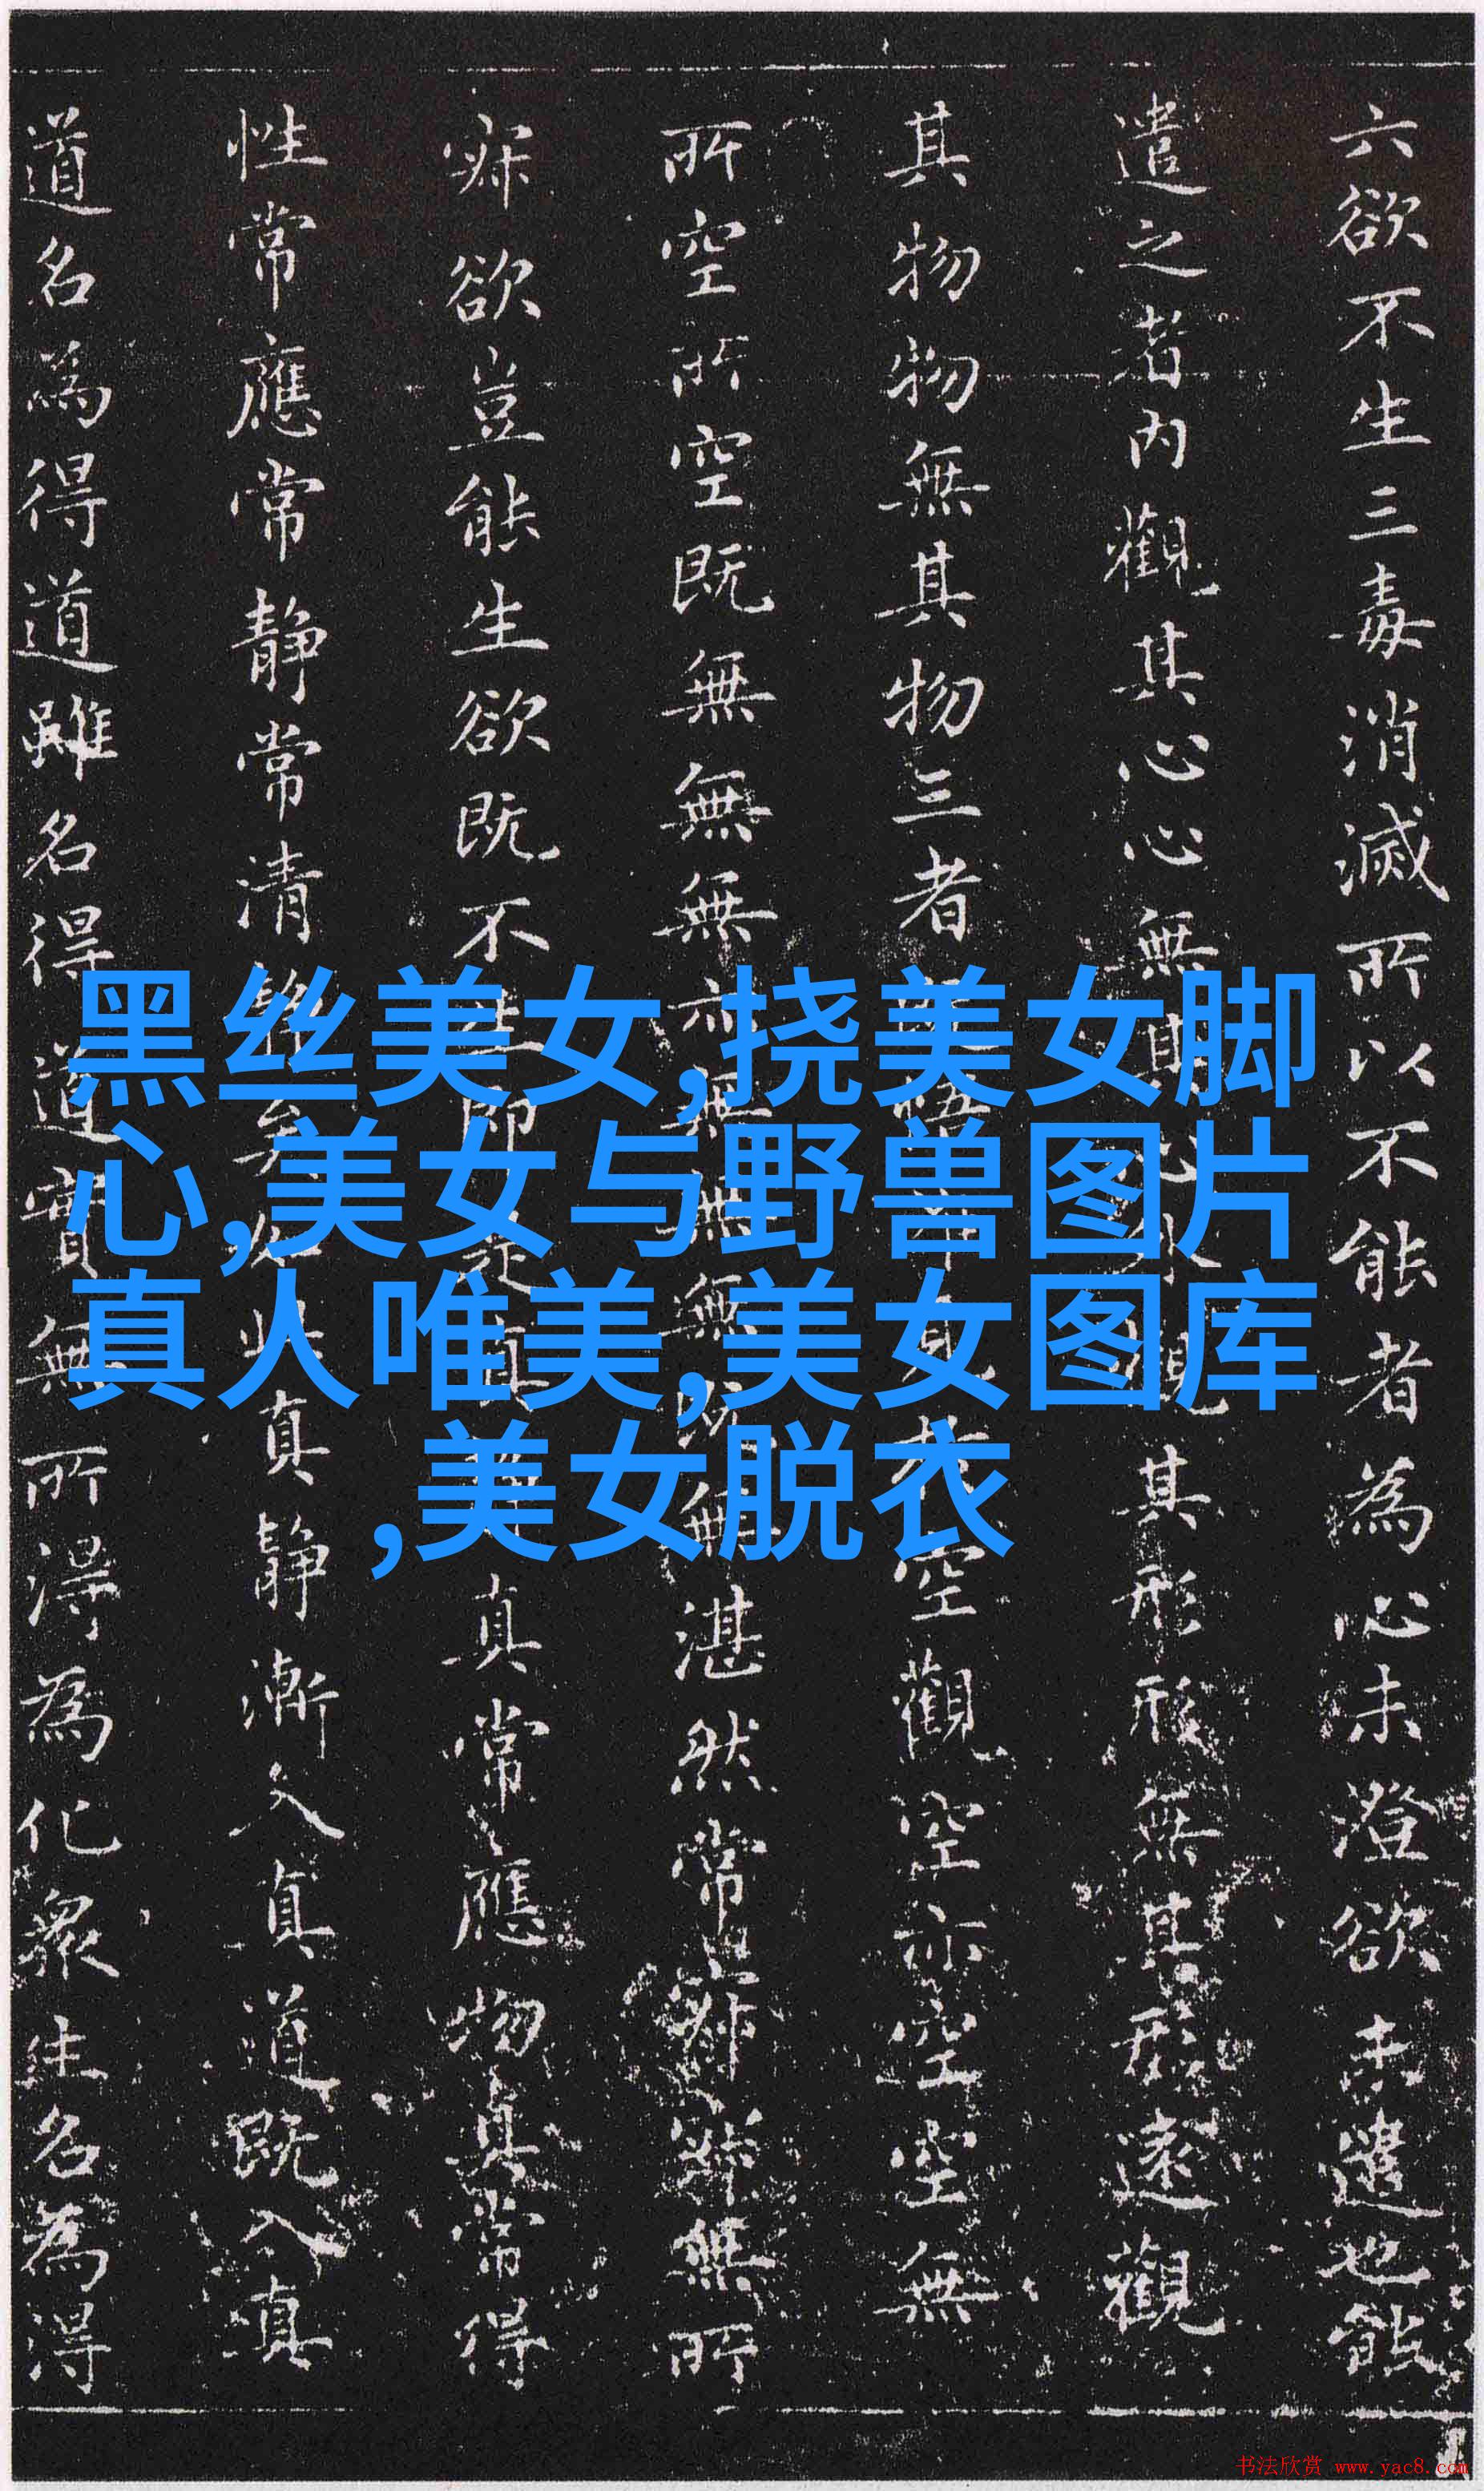 六欲不生三毒消滅所以不能者為心未澄欲未遣也能
遣之者內觀其心心無其心外觀其形形無其形遠觀
其物物無其物三者既悟唯見於空觀空亦空空無
所空所空既無無無亦無無無既無湛然常寂寂無所
寂欲豈能生欲既不生即是真靜真常應物真常得
性常應常靜常清靜矣如此真靜漸入真道既入真
道名為得道雖名得道實無所得為化眾生名為得
黑丝美女,挠美女脚
心,美女与野兽图片
真人唯美,美女图库
,美女脱衣
书法欣赏 www.yac8.com